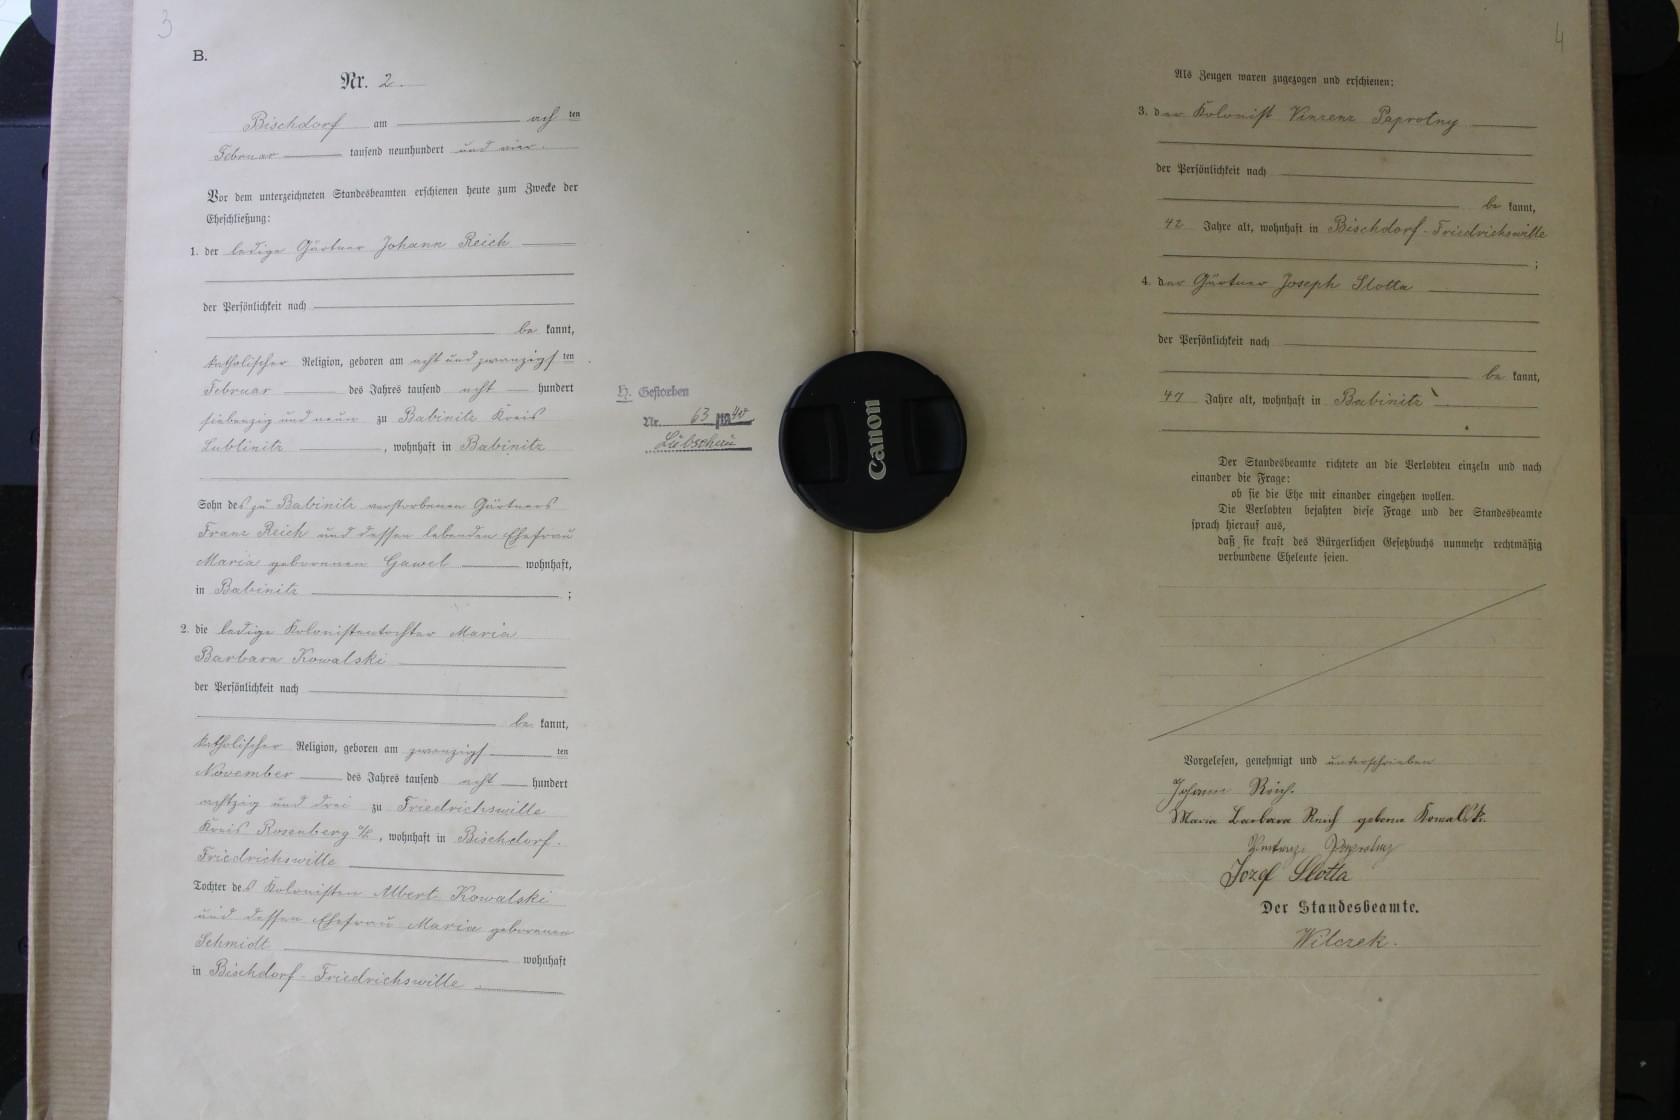 3
B.
Nr. 2.
Bischdorf am acht ten
Februar tausend neunhundert und vier.
Vor dem unterzeichneten Standesbeamten erschienen heute zum Zwecke der
Eheschließung:
1. der ledige Gärtner Johann Reich
der Persönlichkeit nach
be kannt,
katholischer Religion, geboren am acht und zwanzigs ten
Februar des Jahres tausend acht hundert
siebenzig und neun zu Babinitz Kreis
Lublinitz, wohnhaft in Babinitz
Sohn des zu Babinitz verstorbenen Gärtners
Franz Reich und dessen lebenden Ehefrau
Maria geborenen Gawel wohnhaft,
in Babinitz ;
2. die ledige Kolonistentochter Maria
Barbara Kowalski
der Persönlichkeit nach
be kannt,
katholischer Religion, geboren am zwanzigs ten
November des Jahres tausend acht hundert
achtzig und drei zu Friedrichswille
Kreis Rosenberg O/S, wohnhaft in Bischdorf-
Friedrichswille
Tochter des Kolonisten Albert Kowalski
und dessen Ehefrau Maria geborenen
Schmidt wohnhaft
in Bischdorf-Friedrichswille
H. Gestorben
Nr. 63 1940
Lubschau
Canon
4
Als Zeugen waren zugezogen und erschienen:
3. der Kolonist Vinzenz Paprotny
der Persönlichkeit nach
be kannt,
42 Jahre alt, wohnhaft in Bischdorf-Friedrichswille
;
4. der Gärtner Joseph Slotta
der Persönlichkeit nach
be kannt,
47 Jahre alt, wohnhaft in Babinitz
Der Standesbeamte richtete an die Verlobten einzeln und nach
einander die Frage:
ob sie die Ehe mit einander eingehen wollen.
Die Verlobten bejahten diese Frage und der Standesbeamte
sprach hierauf aus,
daß sie kraft des Bürgerlichen Gesetzbuchs nunmehr rechtmäßig
verbundene Eheleute seien.
Vorgelesen, genehmigt und unterschrieben
Johann Reich.
Maria Barbara Reich geborne Kowalski.
Paprotny
Jozef Slotta
Der Standesbeamte.
Wilczek.